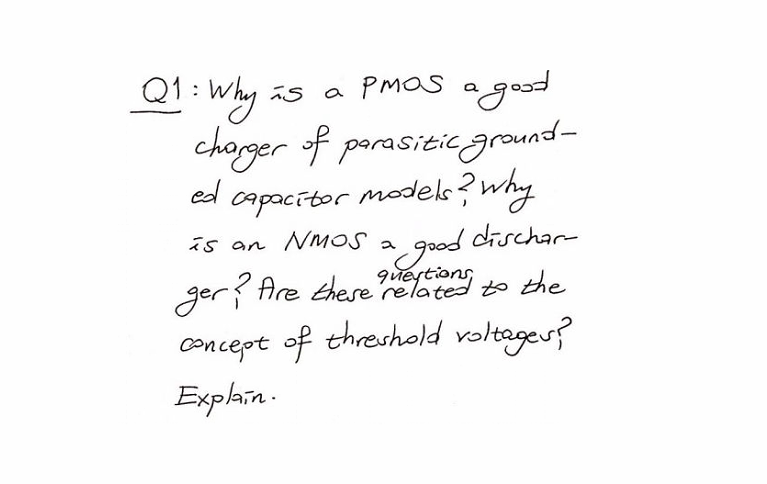 Q1: Why is a PMOS a good
charger of parasitic ground-
ed capacitor models? Why
is an NMOS a good dischar-
ger? Are these questions related to the
concept of threshold voltages?
Explain.